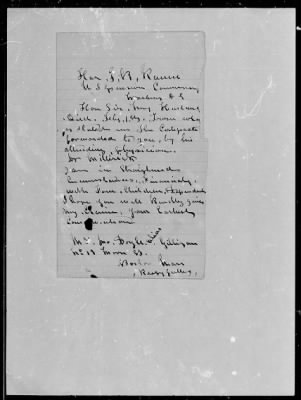 Hon. G. B. Raum
U S Pension Commissioner
Washing D C
Hon Sir, My Husband
Died. July, 1st, From what
is stated in the Certificate
forwarded to you, by his
attending physician.
Dr Millerick
I am in Straightened
Circumstances, Financialy,
with Four, Children, Dependent
I hope you will Kindly give
My, Claim, your Earliest
Consideration
Mrs. Doyle alias Gilligan
No 19 Moon St.
Boston Mass